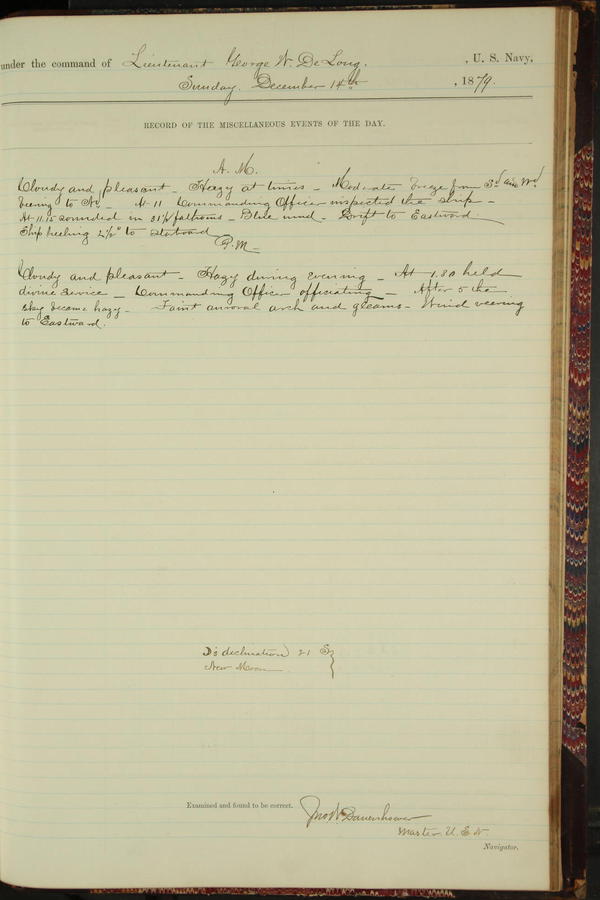 under the command of Lieutenant George W. De Long. , U. S. Navy,
Sunday. December 14th , 1879.
RECORD OF THE MISCELLANEOUS EVENTS OF THE DAY.
A. M.
Cloudy and pleasant - Hazy at times - Moderate breeze from Sd and Wd
veering to - At 11 Commanding Officer inspected the ship -
At 11.15 sounded in 31½ fathoms - Blue mud - Drift to Eastward -
Ship heeling 2½° to starboard
P.M -
Cloudy and pleasant - Hazy during evening - At 1.30 held
divine service - Commanding Officer officiating - After 5 the
sky became hazy - Faint auroral arch and gleams - Wind veering
to Eastward.
☽'s declination 21 S }
New Moon
Examined and found to be correct. Jno W Danenhower
Master U.S.N.
Navigator.